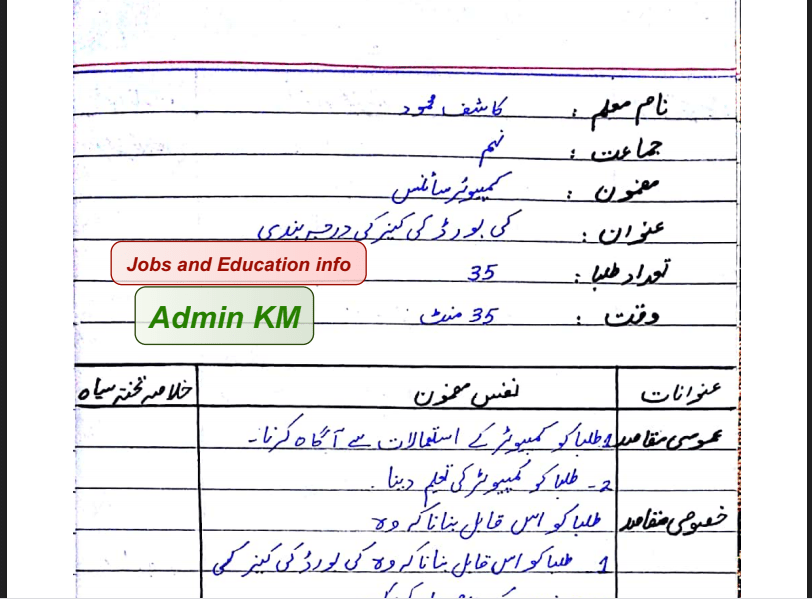 نام معلم : کاشف محمود
جماعت : نہم
مضمون : کمپیوٹر سائنس
عنوان : کی بورڈ کی کیز کی درجہ بندی
Jobs and Education info
تعداد طلبا : 35
Admin KM
وقت : 35 منٹ
عنوانات نفس مضمون خلاصہ تختہ سیاہ
عمومی مقاصد 1 طلبا کو کمپیوٹر کے استعمالات سے آگاہ کرنا۔
2۔ طلبا کو کمپیوٹر کی تعلیم دینا۔
خصوصی مقاصد طلبا کو اس قابل بنانا کہ وہ
1 طلبا کو اس قابل بنانا کہ وہ کی بورڈ کی کیز کی